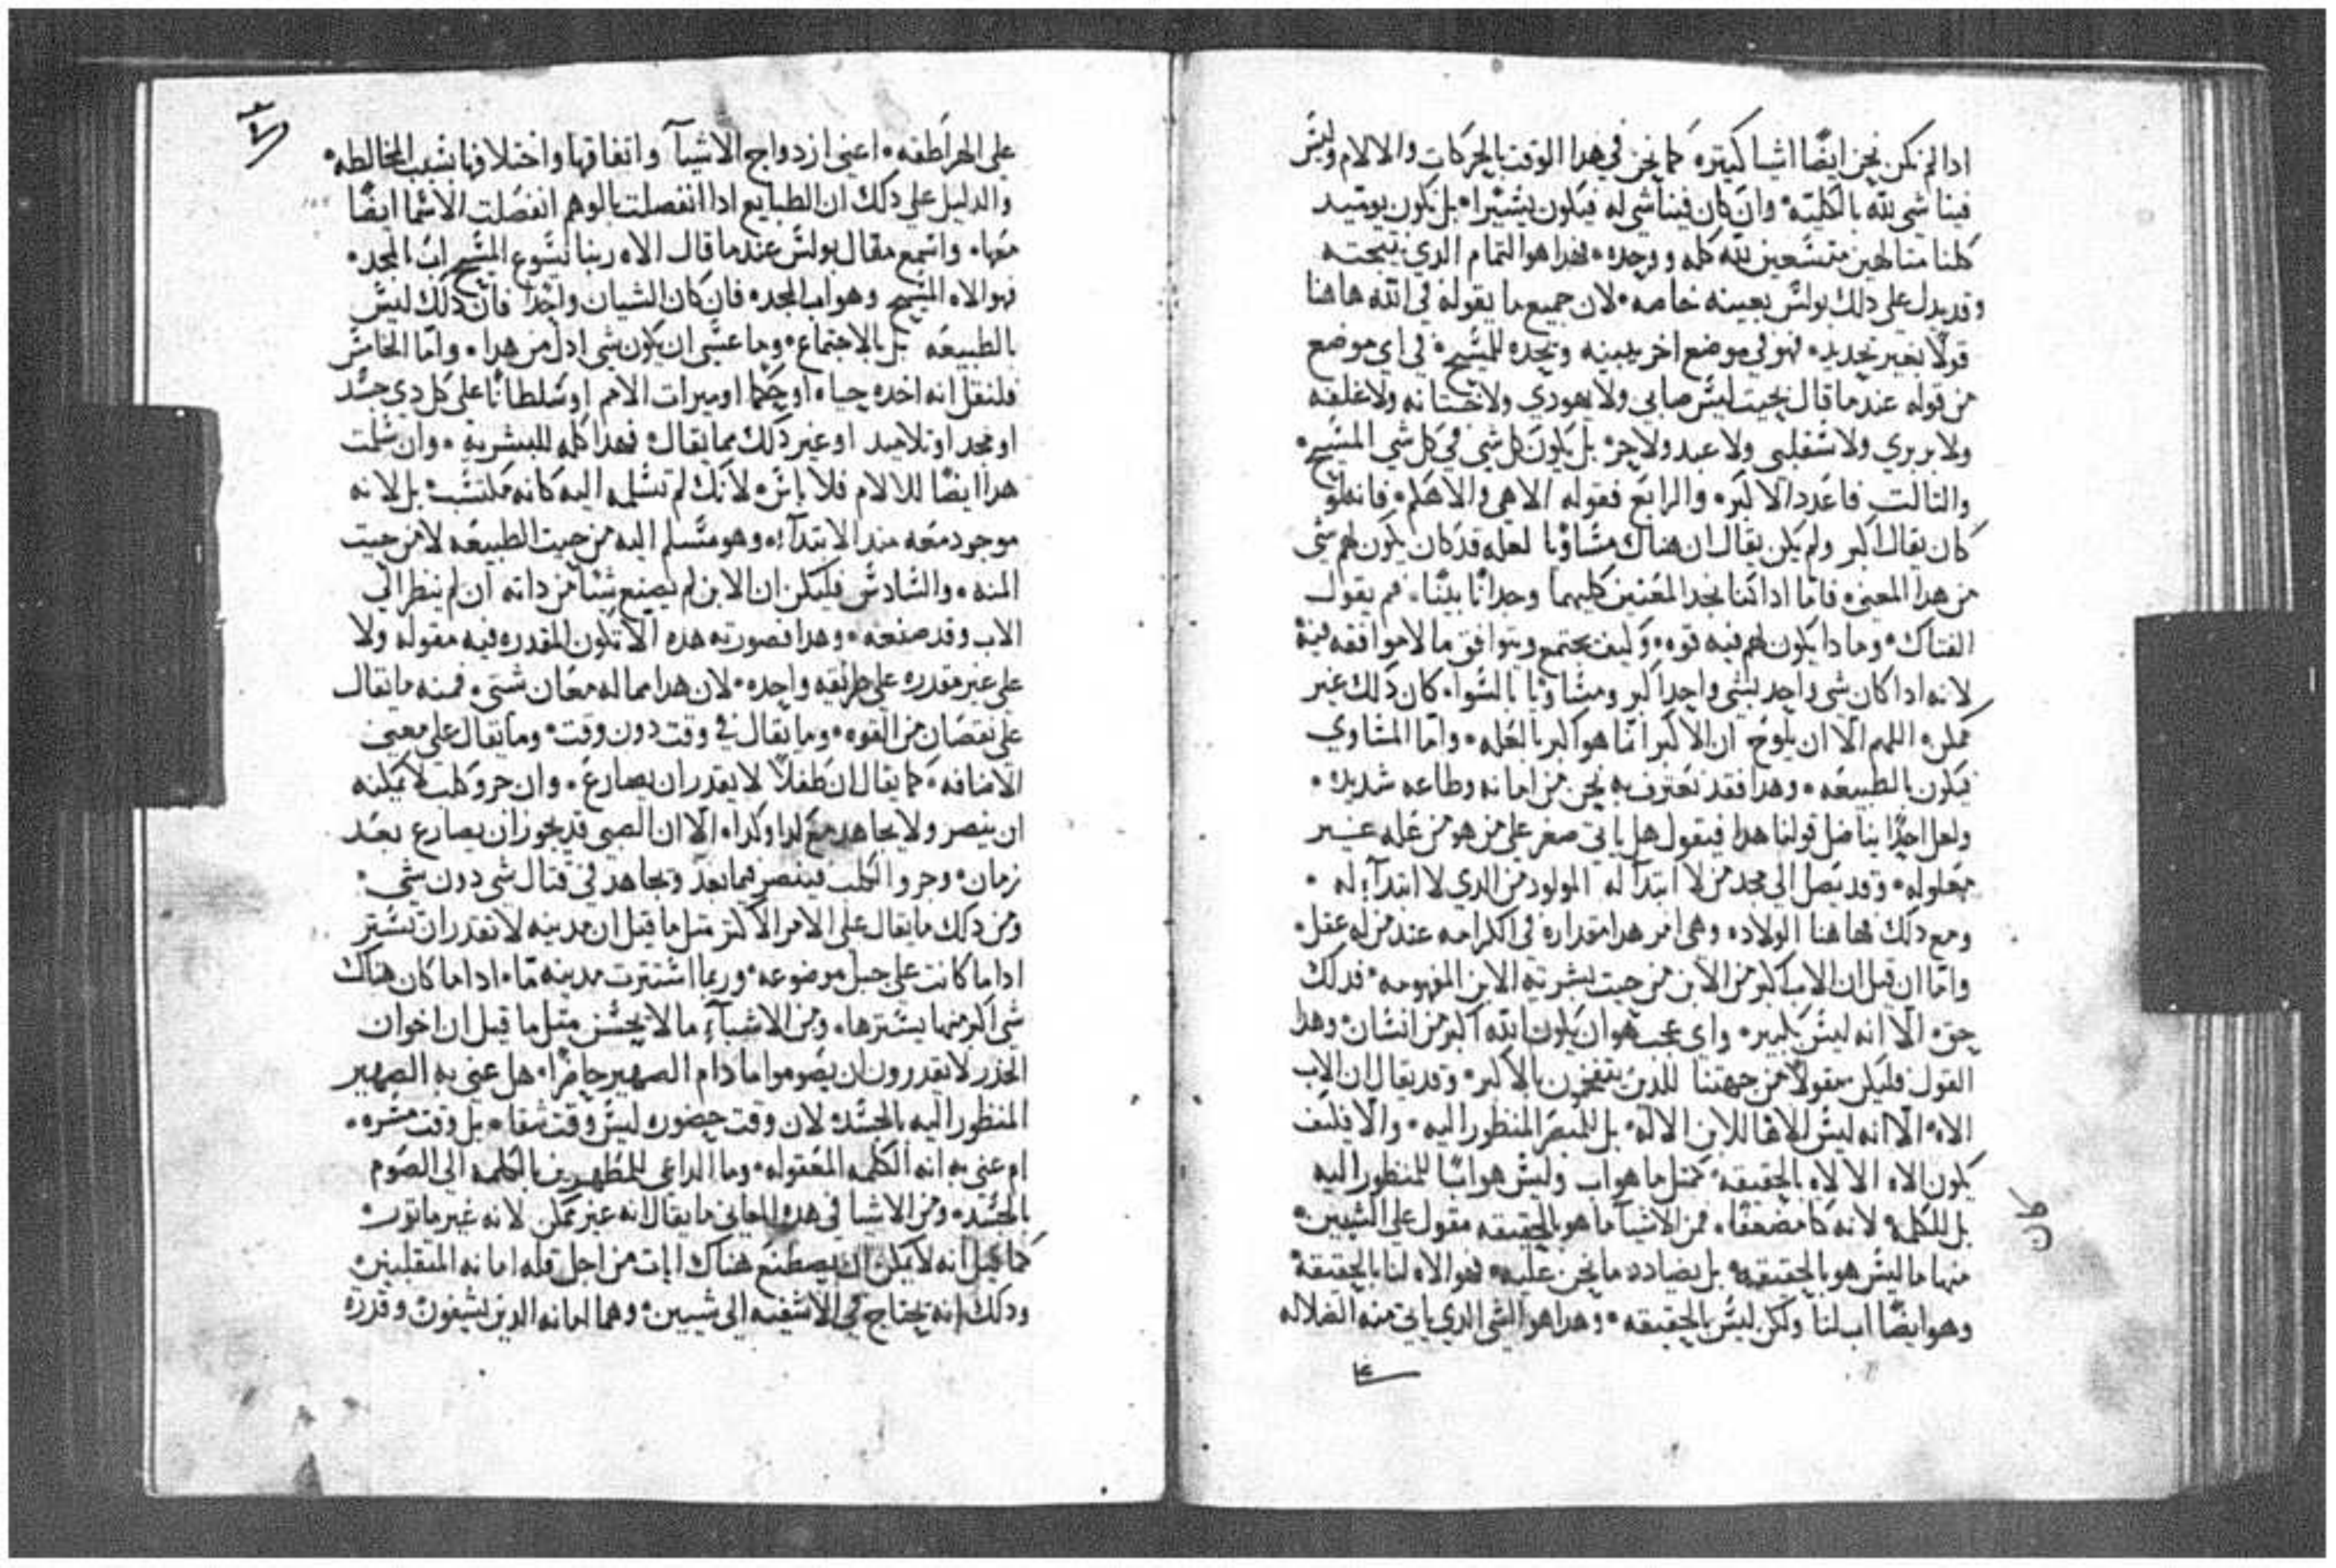 ادا لم نكن نحن ايضًا اشيا كتيره كما نحن في هدا الوقت بالحركات والالام وليس
فينا شي لله بالكليه وان كان فينا شي له فيكون يسيرا بل نكون يوميد
كلنا متالهين متسعين لله كله ووحده فهدا هو التمام الدي
وقد يدل على دلك بولس بعينه خاصه لان جميع ما يقوله في الله هاهنا
قولًا بغير تحديد فهو في موضع اخر يبينه ويحده للمسيح في اي موضع
من قوله عندما قال بحيت ليس صابي ولا يهودي ولا ختانه ولا غلفه
ولا بربري ولا سقلبي ولا عبد ولا حر بل يكون كل شي في كل شي المسيح
والتالت فاعدد الاكبر والرابع فقوله الاهي والاهكم فانه لو
كان يقال اكبر ولم يكن يقال ان هناك مساويا لعله قد كان يكون لهم شي
من هدا المعنى فاما ادا كنا نجد المعنيين كليهما وجدانًا بينًا فم يقول
الفتاك وما دا يكون لهم فيه قوه وكيف يجتمع ويتوافق ما لا موافقه فيه
لانه ادا كان شي واحد لشي واحد اكبر ومساويا بالسواء كان دلك غير
ممكن اللهم الا ان يلوح ان الاكبر انما هو اكبر بالعله واما المساوي
فيكون بالطبيعه وهدا فقد نعترف به نحن من امانه وطاعه شديده
ولعل احدًا يناضل قولنا هدا فيقول هل ياتي صغر على من هو من عله غير
معلوله وقد يصل الى مجد من لا ابتدآ له المولود من الدي لا ابتدآء له
ومع دلك فهاهنا الولاده وهي امر هدا مقداره في الكرامه عند من له عقل
واما ان قيل ان الاب اكبر من الابن من حيت بشرية الابن المفهومه فدلك
حق الا انه ليس بكبير واي عجب هو ان يكون الله اكبر من انسان وهدا
القول فليكن مقولًا من جهتنا للدين يفتخرون بالاكبر وقد يقال ان الاب
الاه الا انه ليس الاها للابن الاله بل للبصر المنظور اليه والا فليف
يكون الاه الالاه بالحقيقه كمتل ما هو اب وليس هو ابًا للمنظور اليه
بل للكلمه لانه كان مضعفا فمن الاشيآ ما هو بالحقيقه مقول على الشيين
منها ما ليس هو بالحقيقه بل يضادد ما نحن عليه فهو الاه لنا بالحقيقه
وهو ايضًا اب لنا ولكن ليس بالحقيقه وهدا هو الشي الدي ياتي منه الضلاله
على الهراطقه اعني ازدواج الاشيآ واتفاقها واختلافها بسبب المخالطه
والدليل على دلك ان الطبايع ادا انفصلت بالوهم انفصلت الاسما ايضًا
معها واسمع مقال بولس عندما قال الاه ربنا يسوع المسيح اب المجد
فهو الاه المسيح وهو اب المجد فان كان الشيان واحدا فان دلك ليس
بالطبيعه بل بالاجتماع وما عسى ان يكون شي ادل من هدا واما الخامس
فلنقل انه اخد حياه او حكما او ميرات الامم او سلطانًا على كل دي جسد
او مجد او تلاميد او غير دلك مما يقال فهدا كله للبشريه وان سلمت
هدا ايضًا للالام فلا باس لانك لم تسلمه اليه كانه مكتسب بل لانه
موجود معه مند الابتدآء وهو متسلم اليه من حيت الطبيعه لا من حيت
المنه والسادس فليكن ان الابن لم يصنع شيًا من داته ان لم ينظر الى
الاب وقد صنعه وهدا فصورته هده الا تكون المقدره فيه مقوله ولا
على غير مقدره على طريقه واحده لان هدا مما له معان شتى فمنه ما يقال
على نقصان من القوه وما يقال في وقت دون وقت وما يقال على معنى
الاضافه كما يقال ان طفلًا لا يقدر ان يصارع وان جرو كلب لا يمكنه
ان ينصر ولا يجاهد مع كدا وكدا الا ان الصبي قد يجوز ان يصارع بعد
زمان وجرو الكلب فينصر فيما بعد ويجاهد في قتال شي دون شي
ومن دلك ما يقال على الامر الاكتر متل ما قيل ان مدينه لا تقدر ان تستتر
ادا ما كانت على جبل موضوعه وربما استترت مدينه ما ادا ما كان هناك
شي اكبر منها يسترها ومن الاشيآء ما لا يحسن متل ما قيل ان اخوان
الخدر لا يقدرون ان يصوموا ما دام الصهير حاضرًا هل عني به الصهير
المنظور اليه بالجسد لان وقت حضوره ليس وقت شقا بل وقت مسره
ام عني به انه الكلمه المعقوله وما الداعي للمطهرين بالكلمه الى الصوم
بالجسد ومن الاشيا في هده المعاني ما يقال انه غير ممكن لانه غير ماتور
كما قيل انه لا يمكن ان يصطنع هناك ايات من اجل قله امانه المتقلبين
ودلك انه يحتاج في الاشفيه الى شيين وهما امانه الدين يشفون وقدرة
كان